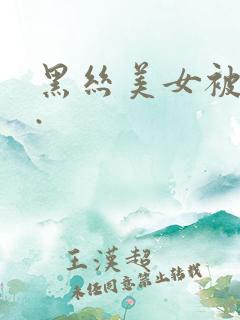 黑絲美女被
.
王漢超
未经同意禁止转载